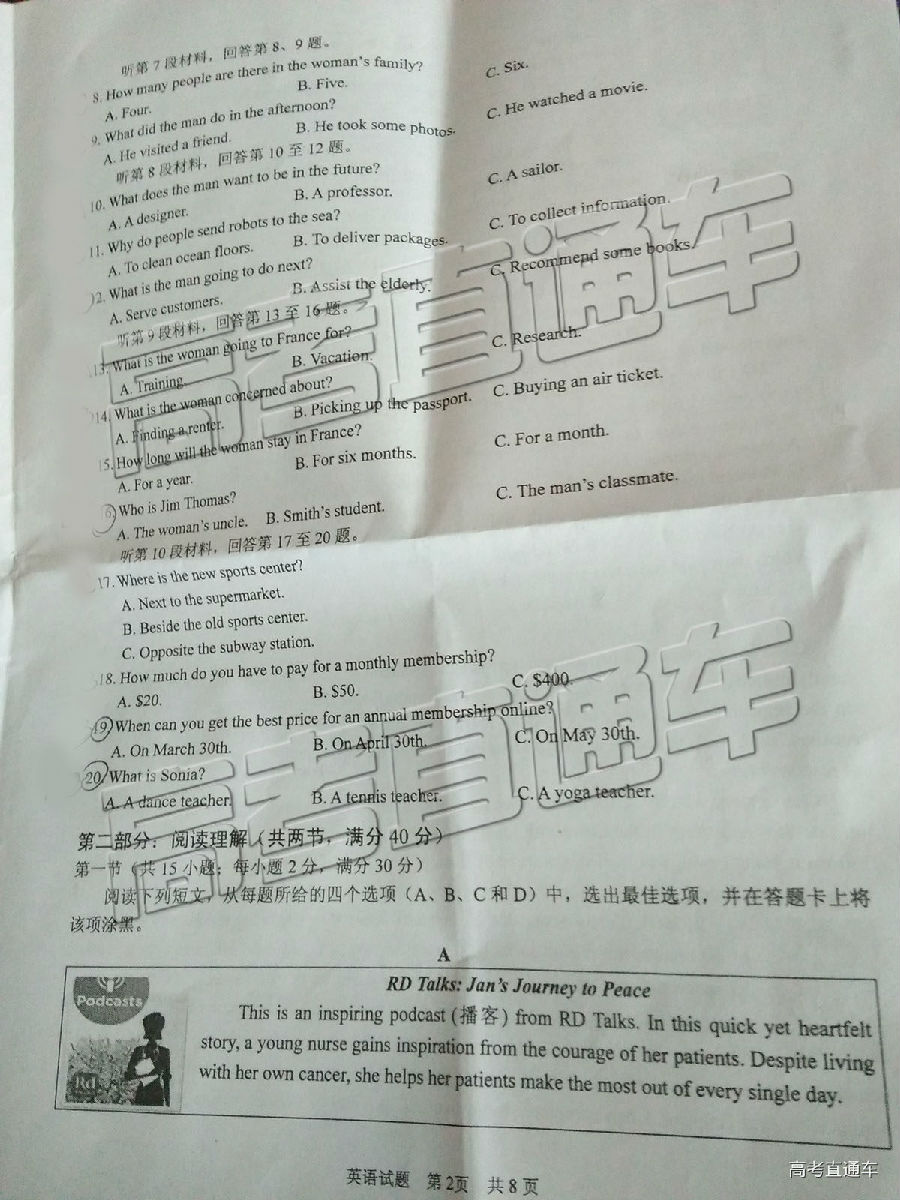 听第7段材料，回答第8、9题。
8. How many people are there in the woman's family?
A. Four. B. Five. C. Six.
9. What did the man do in the afternoon?
A. He visited a friend. B. He took some photos. C. He watched a movie.
听第8段材料，回答第10至12题。
10. What does the man want to be in the future?
A. A designer. B. A professor. C. A sailor.
11. Why do people send robots to the sea?
A. To clean ocean floors. B. To deliver packages. C. To collect information.
12. What is the man going to do next?
A. Serve customers. B. Assist the elderly. C. Recommend some books.
听第9段材料，回答第13至16题。
13. What is the woman going to France for?
A. Training. B. Vacation. C. Research.
14. What is the woman concerned about?
A. Finding a renter. B. Picking up the passport. C. Buying an air ticket.
15. How long will the woman stay in France?
A. For a year. B. For six months. C. For a month.
16. Who is Jim Thomas?
A. The woman's uncle. B. Smith's student. C. The man's classmate.
听第10段材料，回答第17至20题。
17. Where is the new sports center?
A. Next to the supermarket.
B. Beside the old sports center.
C. Opposite the subway station.
18. How much do you have to pay for a monthly membership?
A. $20. B. $50. C. $400.
19. When can you get the best price for an annual membership online?
A. On March 30th. B. On April 30th. C. On May 30th.
20. What is Sonia?
A. A dance teacher. B. A tennis teacher. C. A yoga teacher.
第二部分：阅读理解（共两节，满分40分）
第一节（共15小题；每小题2分，满分30分）
阅读下列短文，从每题所给的四个选项（A、B、C和D）中，选出最佳选项，并在答题卡上将
该项涂黑。
A
Podcasts
Rd
RD Talks: Jan's Journey to Peace
This is an inspiring podcast (播客) from RD Talks. In this quick yet heartfelt
story, a young nurse gains inspiration from the courage of her patients. Despite living
with her own cancer, she helps her patients make the most out of every single day.
英语试题 第2页 共8页
高考直通车
高考直通车
高考直通车